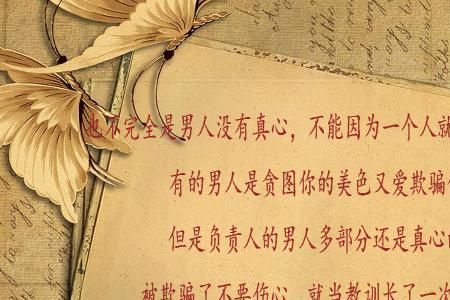 也不完全是男人没有真心，不能因为一个人就
有的男人是贪图你的美色又爱欺骗
但是负责人的男人多部分还是真心
被欺骗了不要伤心，就当教训长了一次